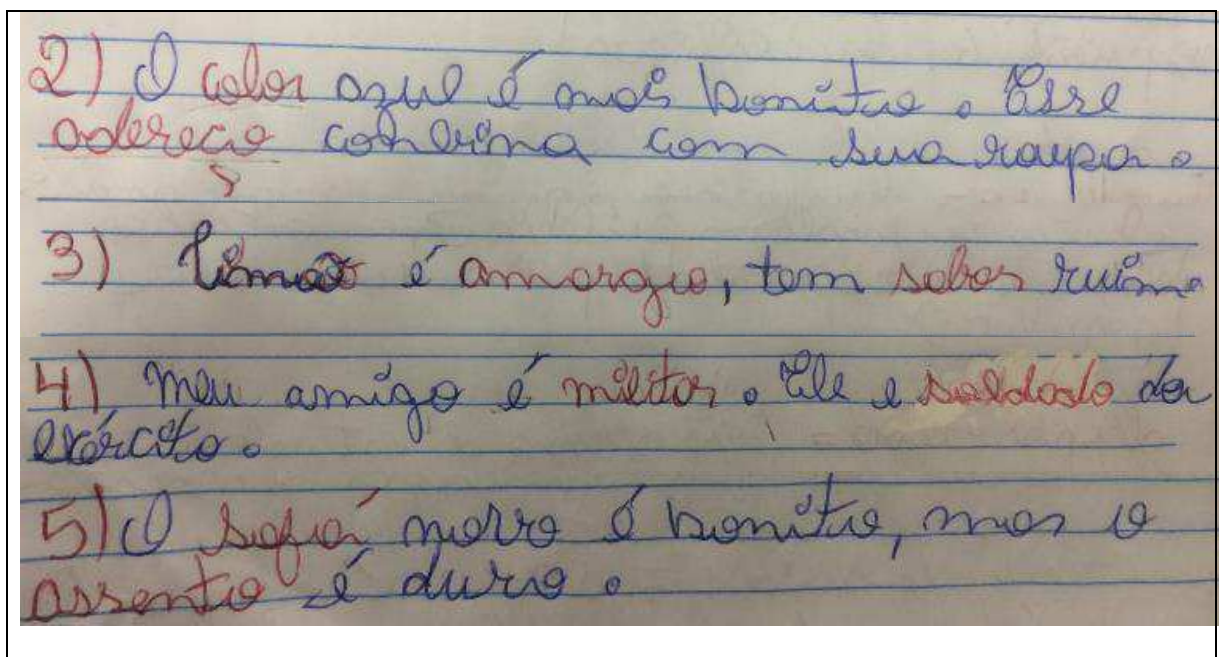 2) O colar azul é mais bonito. Esse
adereço combina com sua roupa.
3) Limão é amargo, tem sabor ruim.
4) Meu amigo é militar. Ele é soldado do
exército.
5) O sofá novo é bonito, mas o
assento é duro.